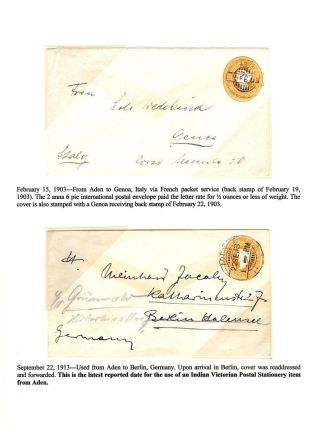 Frau
Genoa
Italy
February 15, 1903—From Aden to Genoa, Italy via French packet service (back stamp of February 19,
1903). The 2 anna 6 pie international postal envelope paid the letter rate for ½ ounces or less of weight. The
cover is also stamped with a Genoa receiving back stamp of February 22, 1903.
Meinhard Jacoby
Katharinenstr 7
Berlin Halensee
Germany
September 22, 1913—Used from Aden to Berlin, Germany. Upon arrival in Berlin, cover was readdressed
and forwarded. This is the latest reported date for the use of an Indian Victorian Postal Stationery item
from Aden.